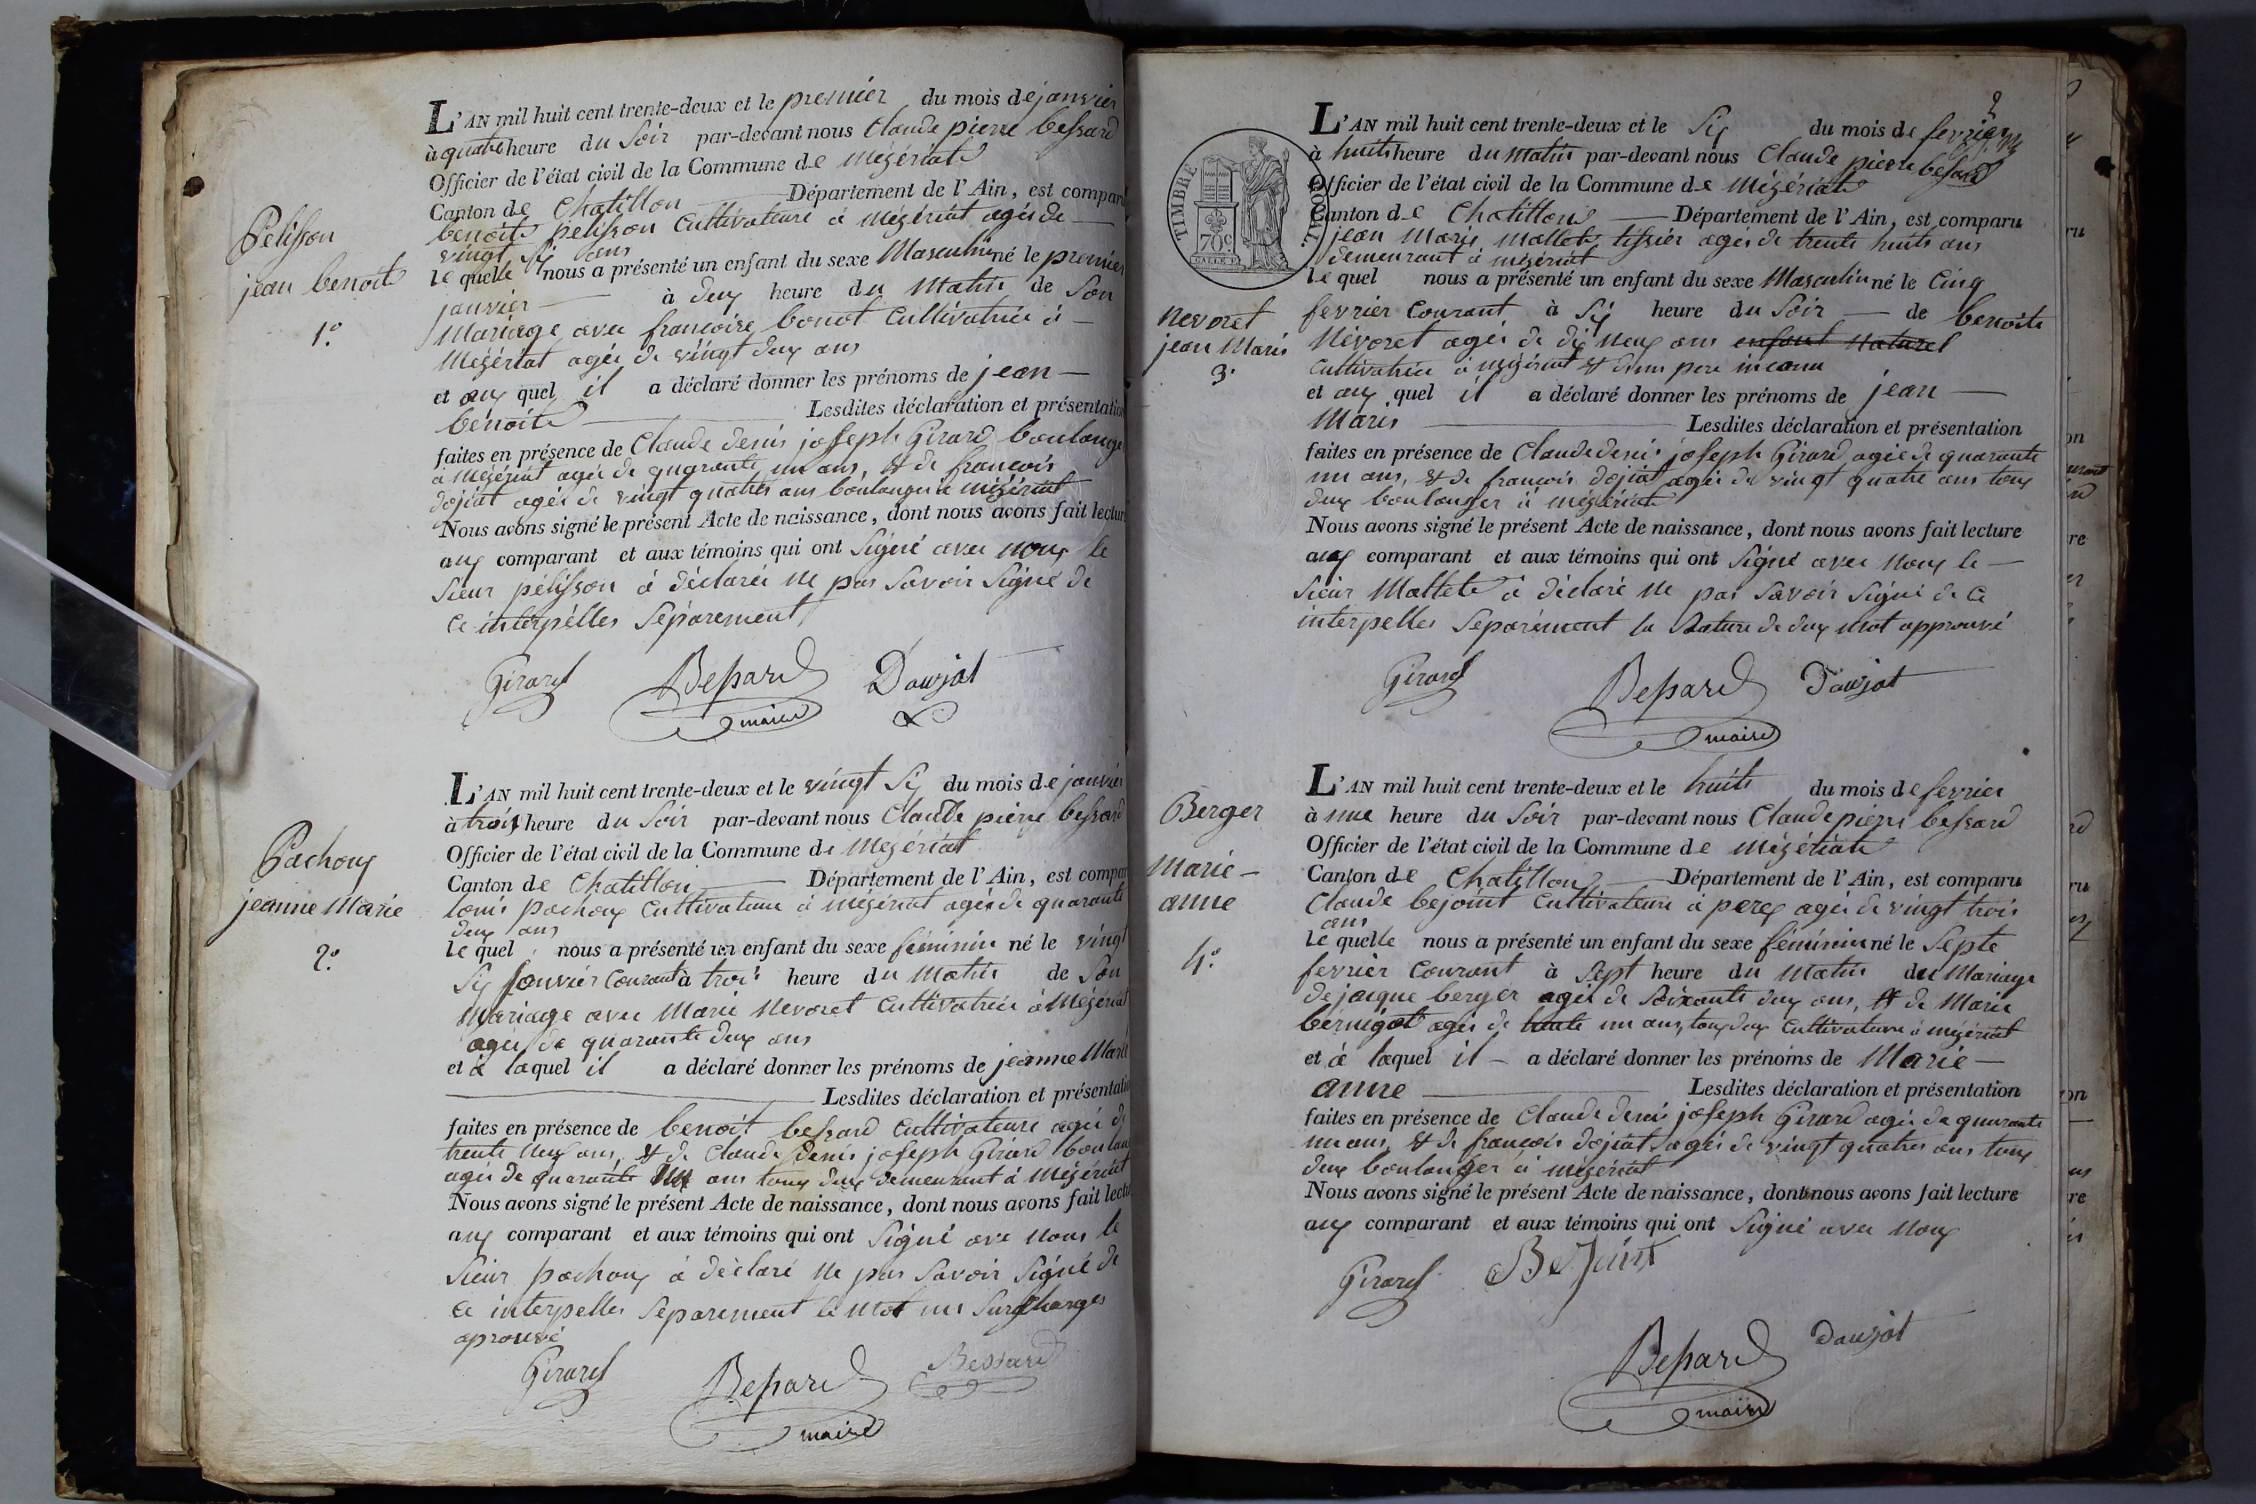 Pelisson
jean benoit
1.°
L'AN mil huit cent trente-deux et le premier du mois de janvier
à quatre heure du Soir par-devant nous Claude pierre bessard
Officier de l'état civil de la Commune de mézériat
Canton de Chatillon Département de l'Ain, est compar
benoite pelisson Cultivateure à mézériat agés de
vingt Six ans
le quelle nous a présenté un enfant du sexe Masculin né le premier
janvier à deux heure du Matin de Son
Mariage avec francoise bonot Cultivatrice à
Mézériat agée de vingt deux ans
et aux quel il a déclaré donner les prénoms de jean
bénoite Lesdites déclaration et présentation
faites en présence de Claude denis joseph Girard boulange
à Mézériat agée de quarante un ans, et de francois
dojat agée de vingt quatres ans boulanger à mézériat
Nous avons signé le présent Acte de naissance, dont nous avons fait lectur
aux comparant et aux témoins qui ont Signé avec nous le
Sieur pélisson à déclarée ne pas Savoir Signé de
Ce interpélles Séparement
Girard Bessard Daujat
maire
Pachoux
jeanne Marie
2.°
L'AN mil huit cent trente-deux et le vingt Six du mois de janvier
à trois heure du Soir par-devant nous Claude pierre bessard
Officier de l'état civil de la Commune de Mézériat
Canton de Chatillon Département de l'Ain, est compar
louis pachoux Cultivateure à mézériat agés de quarante
deux ans
le quel nous a présenté un enfant du sexe féminin né le vingt
Six janvier Courant à trois heure du Matin de Son
Mariage avec Marie Nevoret Cultivatrice à Mézériat
agée de quarante deux ans
et à laquel il a déclaré donner les prénoms de jeanne Marie
Lesdites déclaration et présentati
faites en présence de benoit bessard Cultivateure agée de
trente neuf ans, et de Claude Denis joseph Girard boulan
agés de quarante un ans tous deux demeurant à Mézériat
Nous avons signé le présent Acte de naissance, dont nous avons fait lectu
aux comparant et aux témoins qui ont Signé ave nous le
Sieur pachoux à déclaré ne pas Savoir Signé de
Ce interpelles Séparement le mot un Surcharges
aprouvé
Girard Bessard Bessard
maire
2
TIMBRE ROYAL.
70c
L'AN mil huit cent trente-deux et le Six du mois de fevrier
à huits heure du Matin par-devant nous Claude pierre bessard
Officier de l'état civil de la Commune de Mézériat
Canton de Chatillon Département de l'Ain, est comparu
jean Marie Mallet tissier agés de trente huits ans
demeurant à mézériat
Le quel nous a présenté un enfant du sexe Masculin né le Cinq
nevoret
jean Marie
3.
fevrier Courant à Six heure du Soir de benoite
Névoret agée de dix neuf ans enfant naturel
Cultivatrice à mézériat et d'un pere inconu
et aux quel il a déclaré donner les prénoms de jean
Marie Lesdites déclaration et présentation
faites en présence de Claude denis joseph Girard agée de quarante
un ans, et de francois dojat agée de vingt quatre ans tous
deux boulanger à mézériat
Nous avons signé le présent Acte de naissance, dont nous avons fait lecture
aux comparant et aux témoins qui ont Signé avec nous le
Sieur Mallet à déclaré ne pas Savoir Signé de Ce
interpelles Séparément la Rature de deux mot approuvé
Girard Bessard Daujat
maire
Berger
Marie-
anne
4.°
L'AN mil huit cent trente-deux et le huits du mois de fevrier
à une heure du Soir par-devant nous Claude pierre bessard
Officier de l'état civil de la Commune de mézériat
Canton de Chatillon Département de l'Ain, est comparu
Claude bejoint Cultivateure à perex agée de vingt trois
ans
Le quelle nous a présenté un enfant du sexe féminin né le Septe
fevrier Courant à Sept heure du Matin du Mariage
de jacque berger agée de Soixante deux ans, et de Marie
bérnigot agée de trente un ans, tous deux Cultivateure à mézériat
et à laquel il a déclaré donner les prénoms de Marie
anne Lesdites déclaration et présentation
faites en présence de Claude denis joseph Girard agée de quarante
un ans, et de francois dojat agée de vingt quatres ans tous
deux boulanger à mézériat
Nous avons signé le présent Acte de naissance, dont nous avons fait lecture
aux comparant et aux témoins qui ont Signé avec nous
Girard Bejoint
Bessard Daujat
maire